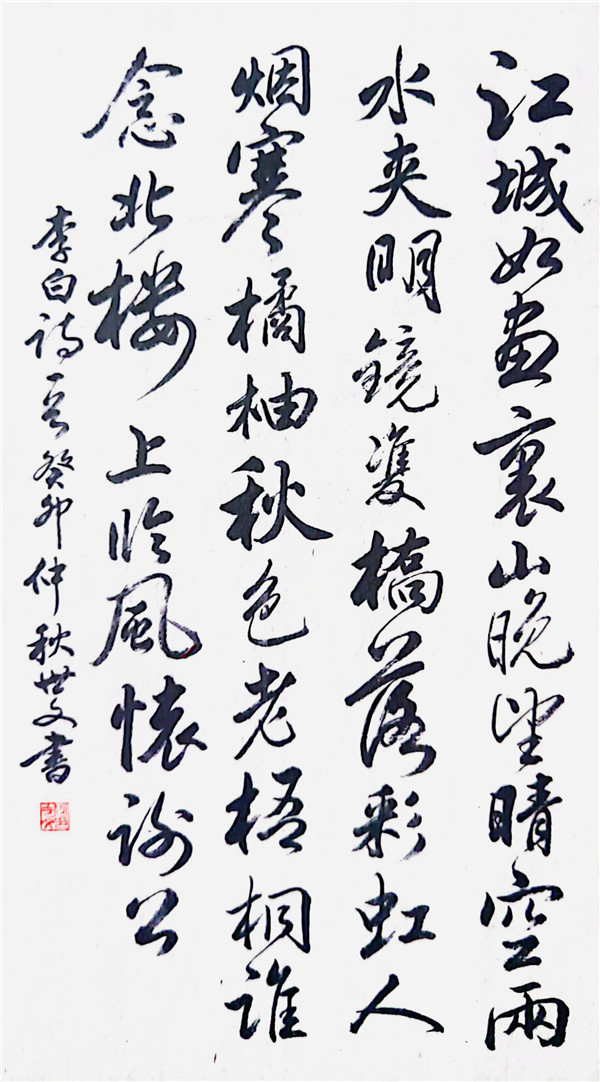 江城如畫裏山晚望晴空兩
水夾明鏡雙橋落彩虹人
烟寒橘柚秋色老梧桐誰
念北樓上臨風懷謝公
李白詩一首癸卯仲秋世文書